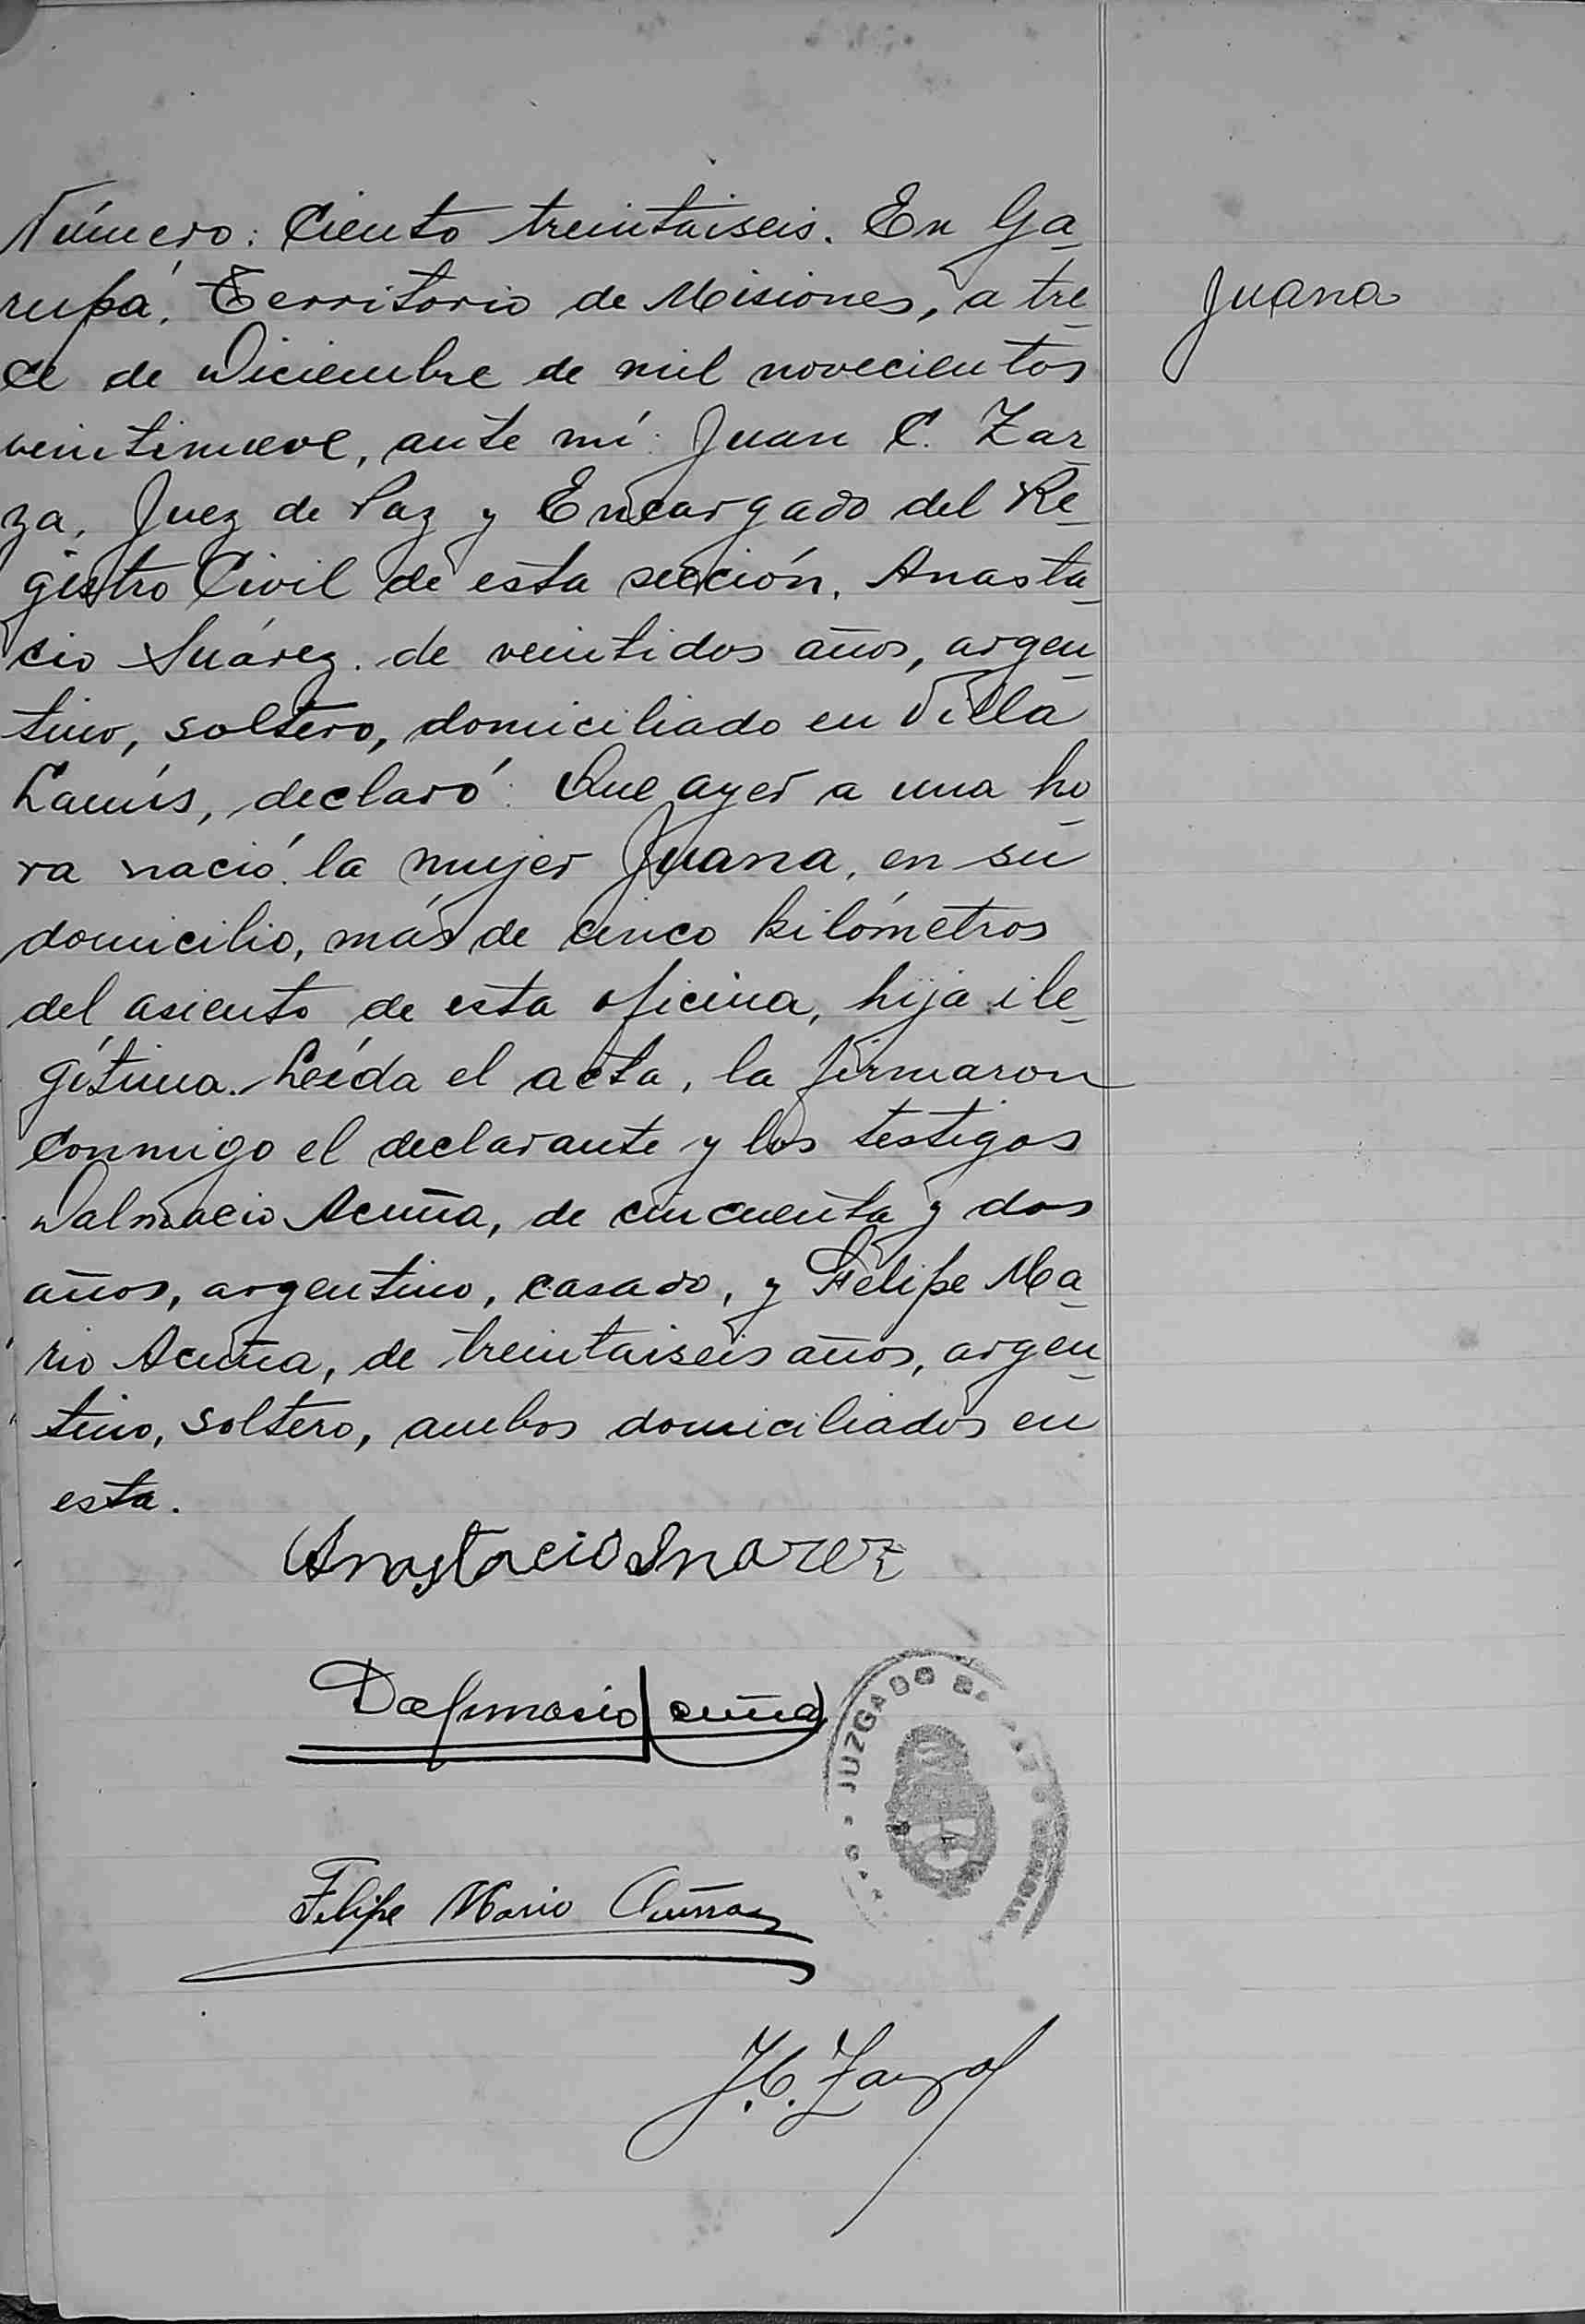 Número: Ciento treintaiseis. En Ga-
rupá, Territorio de Misiones, a tre-
ce de Diciembre de mil novecientos
veintinueve, ante mí: Juan C. Zar-
za, Juez de Paz y Encargado del Re-
gistro Civil de esta sección, Anasta-
cio Suárez, de veintidos años, argen-
tino, soltero, domiciliado en Villa
Lanús, declaró: Que ayer a una ho-
ra nació la mujer Juana, en su
domicilio, más de cinco kilómetros
del asiento de esta oficina, hija ile-
gítima. Leída el acta, la firmaron
conmigo el declarante y los testigos
Dalmacio Acuña, de cincuenta y dos
años, argentino, casado, y Felipe Ma-
rio Acuña, de treintaiseis años, argen-
tino, soltero, ambos domiciliados en
esta.
Juana
Anastacio Suarez
Dalmasio Acuña
JUZGADO DE
Felipe Mario Acuña
J. C. Zarza